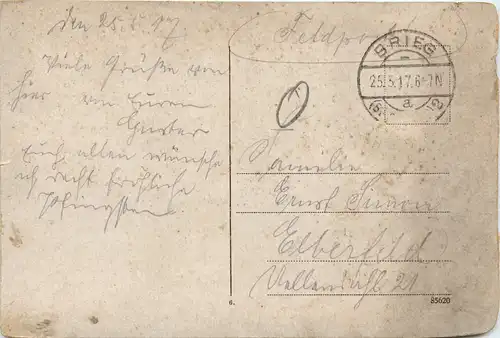 den 25.5.17
Viele Grüße von
hier von Eurem
Gustav
Euch allen wünsche
ich recht fröhliche
Pfingsten
Feldpost
BRIEG
25.5.17.6-7N
a
Familie
Ernst Simon
Elberfeld
21
6.
85620